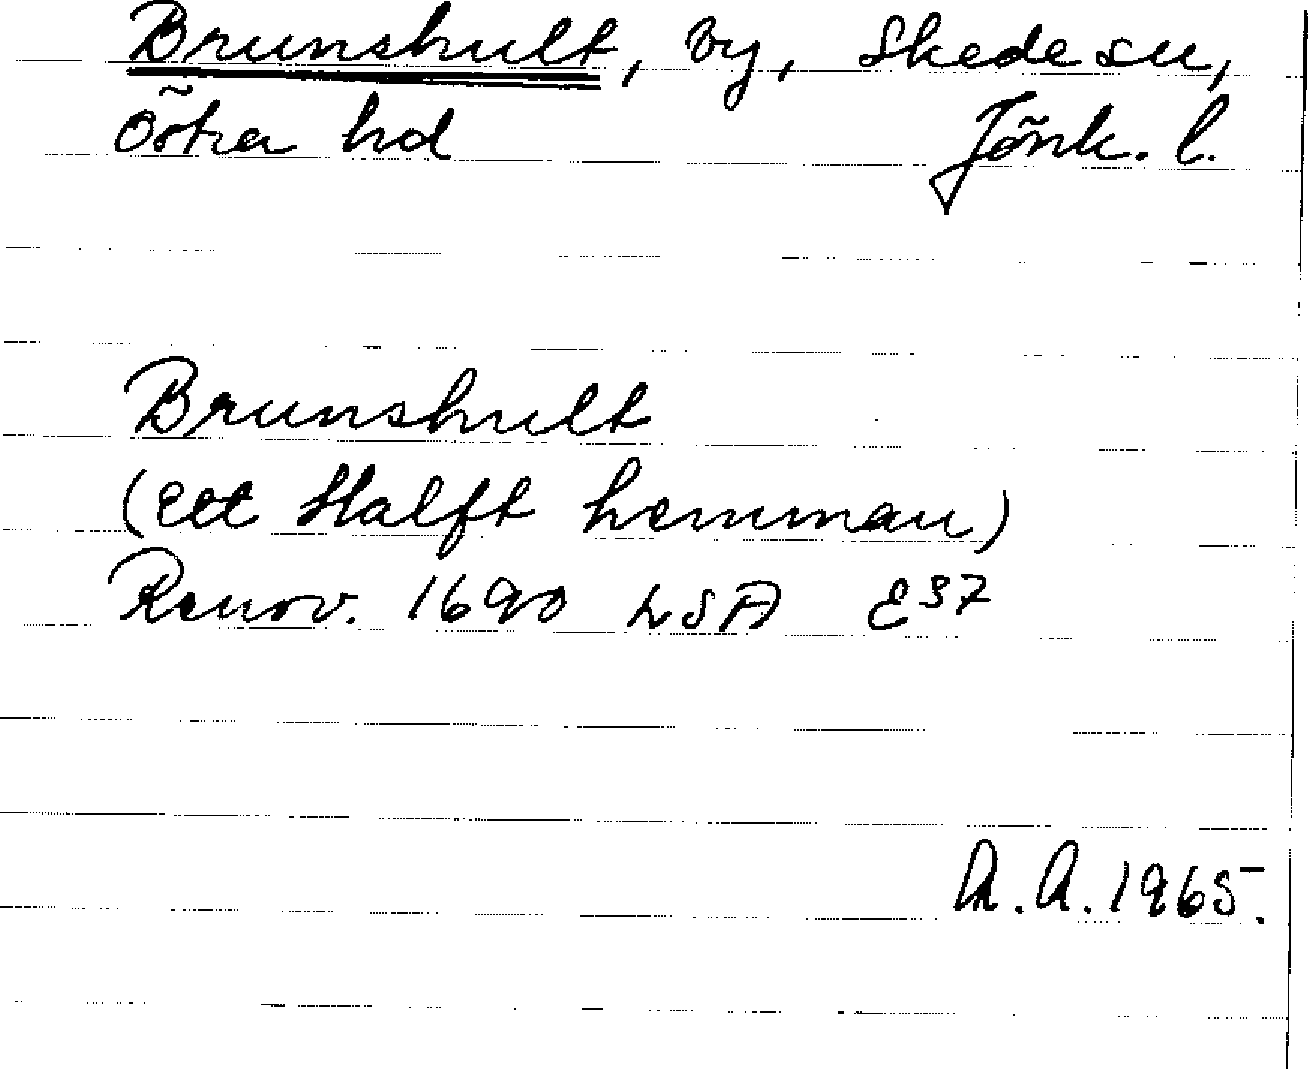 Brunshult, by, Skede sn,
Östra hd Jönk. l.
Brunshult
(Ett Halft hemman)
Renov. 1690 LSA E37
A.A. 1965.